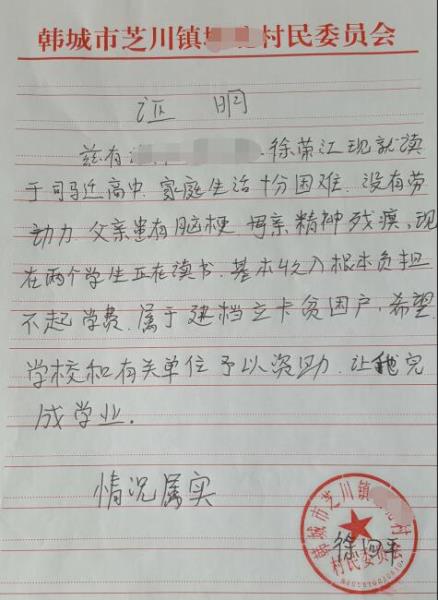 韩城市芝川镇 村民委员会
证 明
兹有 徐荣江现就读
于司马迁高中.家庭生活十分困难.没有劳
动力.父亲患有脑梗 母亲精神残疾.现
在两个学生正在读书.基本收入根本负担
不起学费.属于建档立卡贫困户,希望
学校和有关单位予以资助.让他完
成学业.
情况属实
韩城市芝川镇 村
村民委员会